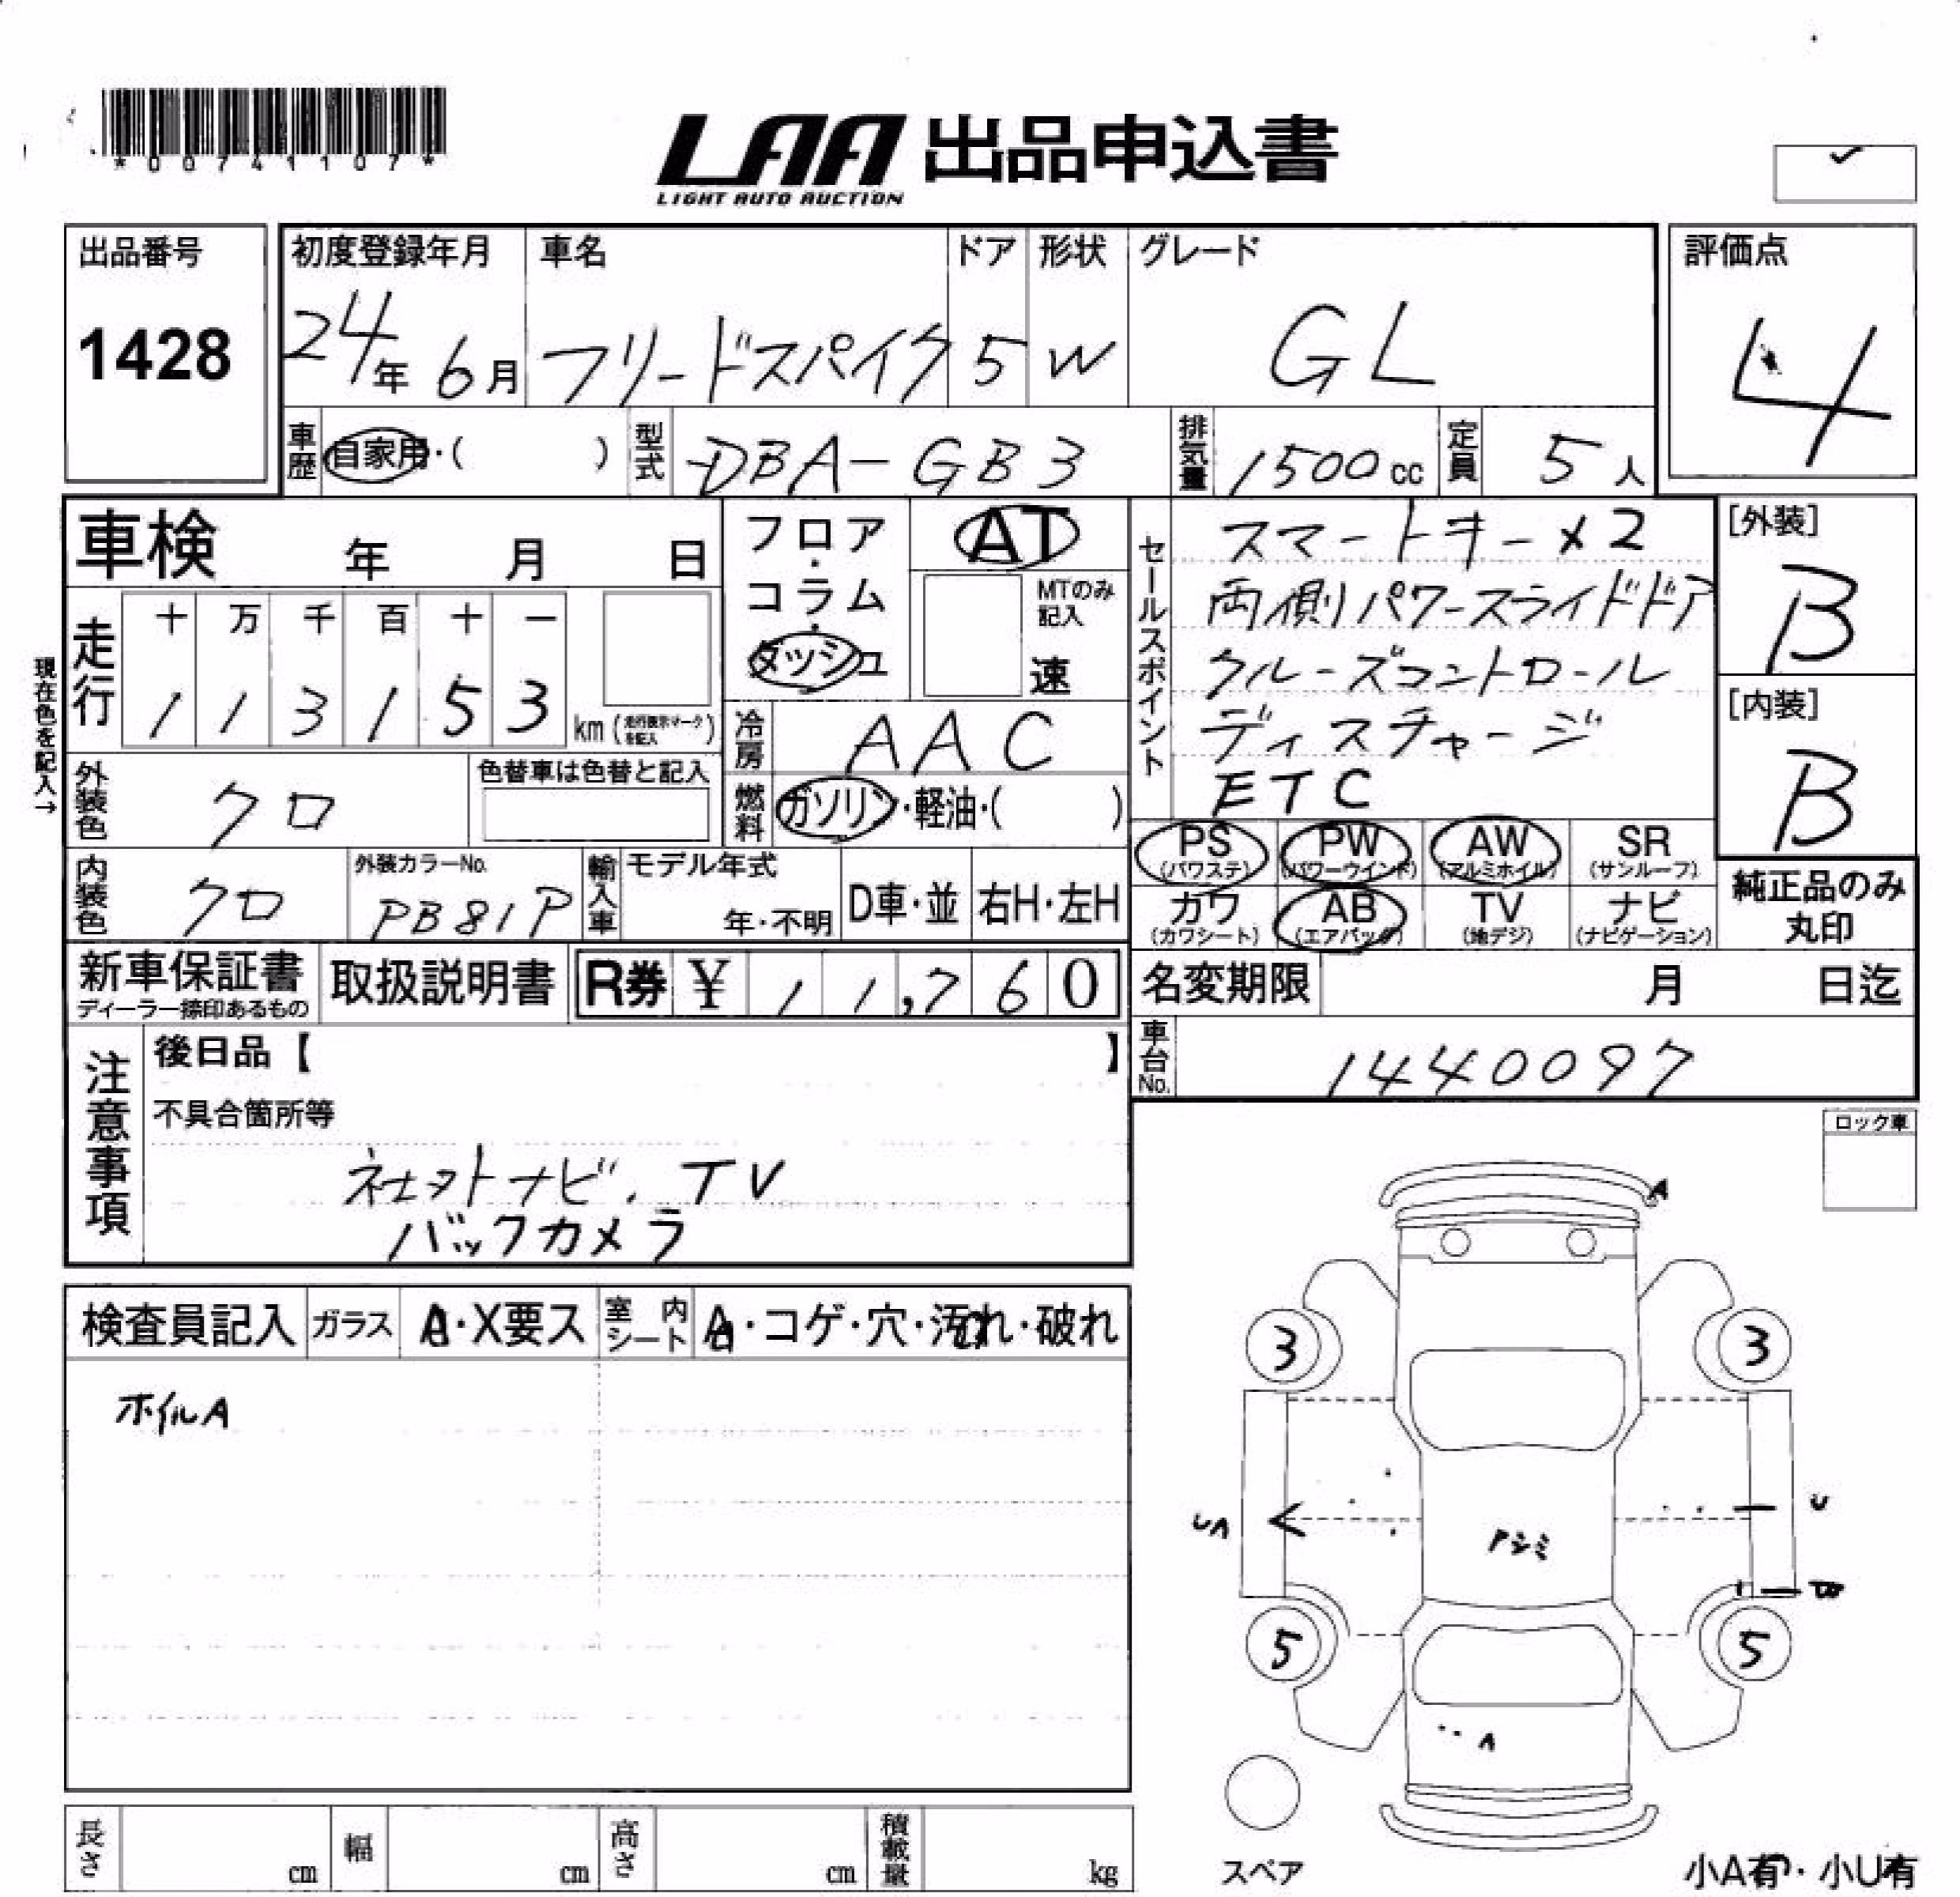 *00741107*
LAA 出品申込書
LIGHT AUTO AUCTION
出品番号
1428
初度登録年月 車名 ドア 形状 グレード
24年 6月 フリードスパイク 5 W GL
評価点
4
車歴 自家用・( ) 型式 DBA-GB3 排気量 1500cc 定員 5人
車検 年 月 日
フロア・コラム・ダッシュ
AT
MTのみ記入
速
現在色を記入→
走行 十 万 千 百 十 一
1 1 3 1 5 3 km (走行表示マークを記入)
セールスポイント
スマートキー×2
両側パワースライドドア
クルーズコントロール
ディスチャージ
ETC
[外装]
B
[内装]
B
冷房 AAC
燃料 ガソリン・軽油・( )
外装色 クロ 色替車は色替と記入
内装色 クロ 外装カラーNo. PB81P
輸入車 モデル年式 年・不明 D車・並 右H・左H
PS (パワステ) PW (パワーウインド) AW (アルミホイル) SR (サンルーフ)
カワ (カワシート) AB (エアバッグ) TV (地デジ) ナビ (ナビゲーション)
純正品のみ
丸印
新車保証書 取扱説明書 R券 ¥ 11,760
ディーラー捺印あるもの
名変期限 月 日迄
車台No. 1440097
注意事項
後日品【 】
不具合箇所等
社外ナビ、TV
バックカメラ
ロック車
検査員記入 ガラス A・X要ス 室内シート A・コゲ・穴・汚れ・破れ
ホイルA
A
3 3
UA
U
アシミ
5 5
A
スペア
長さ cm 幅 cm 高さ cm 積載量 kg
小A有・小U有